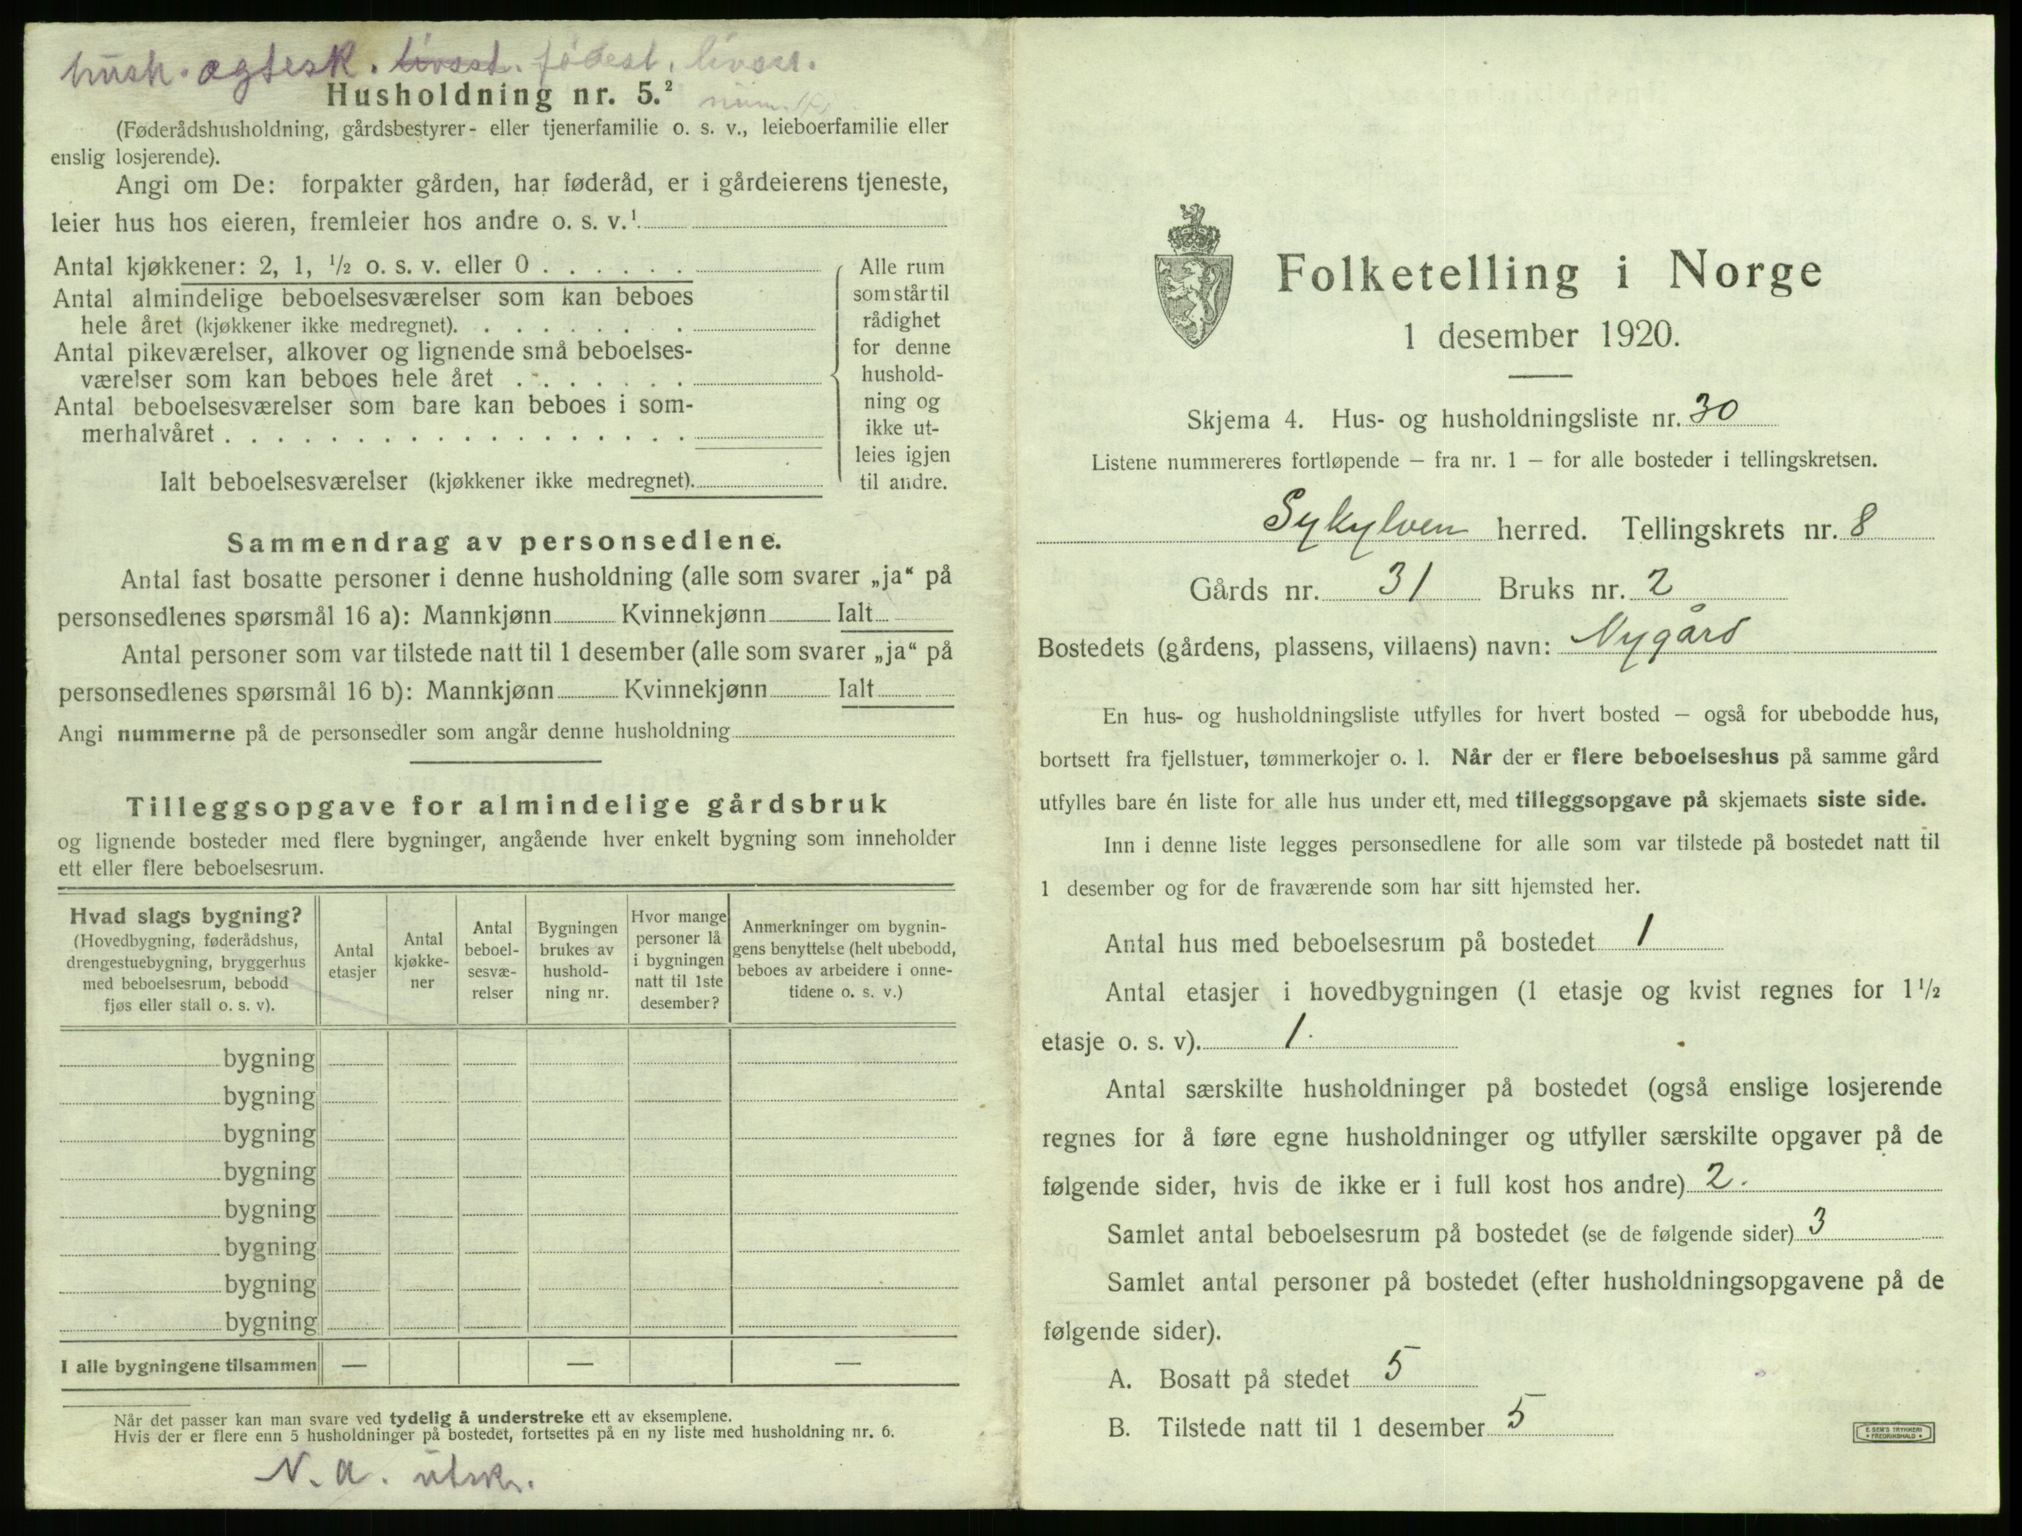 husk. ægtesk. livsst. fødest. livsst.
Husholdning nr. 5.²
(Føderådshusholdning, gårdsbestyrer- eller tjenerfamilie o. s. v., leieboerfamilie eller
enslig losjerende).
Angi om De: forpakter gården, har føderåd, er i gårdeierens tjeneste,
leier hus hos eieren, fremleier hos andre o. s. v.¹
Antal kjøkkener: 2, 1, ½ o. s. v. eller 0
Antal almindelige beboelsesværelser som kan beboes
hele året (kjøkkener ikke medregnet).
Antal pikeværelser, alkover og lignende små beboelses-
værelser som kan beboes hele året
Antal beboelsesværelser som bare kan beboes i som-
merhalvåret
Ialt beboelsesværelser (kjøkkener ikke medregnet).
Alle rum
som står til
rådighet
for denne
hushold-
ning og
ikke ut-
leies igjen
til andre.
Sammendrag av personsedlene.
Antal fast bosatte personer i denne husholdning (alle som svarer „ja“ på
personsedlenes spørsmål 16 a): Mannkjønn Kvinnekjønn Ialt
Antal personer som var tilstede natt til 1 desember (alle som svarer „ja“ på
personsedlenes spørsmål 16 b): Mannkjønn Kvinnekjønn Ialt
Angi nummerne på de personsedler som angår denne husholdning
Tilleggsopgave for almindelige gårdsbruk
og lignende bosteder med flere bygninger, angående hver enkelt bygning som inneholder
ett eller flere beboelsesrum.
Hvad slags bygning?
(Hovedbygning, føderådshus,
drengestuebygning, bryggerhus
med beboelsesrum, bebodd
fjøs eller stall o. s. v).
Antal
etasjer
Antal
kjøkke-
ner
Antal
beboel-
sesvæ-
relser
Bygningen
brukes av
hushold-
ning nr.
Hvor mange
personer lå
i bygningen
natt til 1ste
desember?
Anmerkninger om bygnin-
gens benyttelse (helt ubebodd,
beboes av arbeidere i onne-
tidene o. s. v.)
bygning
bygning
bygning
bygning
bygning
bygning
bygning
bygning
I alle bygningene tilsammen — — —
Når det passer kan man svare ved tydelig å understreke ett av eksemplene.
Hvis der er flere enn 5 husholdninger på bostedet, fortsettes på en ny liste med husholdning nr. 6.
N. A. utskr.
Folketelling i Norge
1 desember 1920.
Skjema 4. Hus- og husholdningsliste nr. 30
Listene nummereres fortløpende — fra nr. 1 — for alle bosteder i tellingskretsen.
Sykylven herred. Tellingskrets nr. 8
Gårds nr. 31 Bruks nr. 2
Bostedets (gårdens, plassens, villaens) navn: Nygård
En hus- og husholdningsliste utfylles for hvert bosted — også for ubebodde hus,
bortsett fra fjellstuer, tømmerkojer o. l. Når der er flere beboelseshus på samme gård
utfylles bare én liste for alle hus under ett, med tilleggsopgave på skjemaets siste side.
Inn i denne liste legges personsedlene for alle som var tilstede på bostedet natt til
1 desember og for de fraværende som har sitt hjemsted her.
Antal hus med beboelsesrum på bostedet 1
Antal etasjer i hovedbygningen (1 etasje og kvist regnes for 1½
etasje o. s. v). 1.
Antal særskilte husholdninger på bostedet (også enslige losjerende
regnes for å føre egne husholdninger og utfyller særskilte opgaver på de
følgende sider, hvis de ikke er i full kost hos andre) 2.
Samlet antal beboelsesrum på bostedet (se de følgende sider) 3
Samlet antal personer på bostedet (efter husholdningsopgavene på de
følgende sider).
A. Bosatt på stedet 5
B. Tilstede natt til 1 desember 5
E. SEM'S TRYKKERI
FREDRIKSHALD